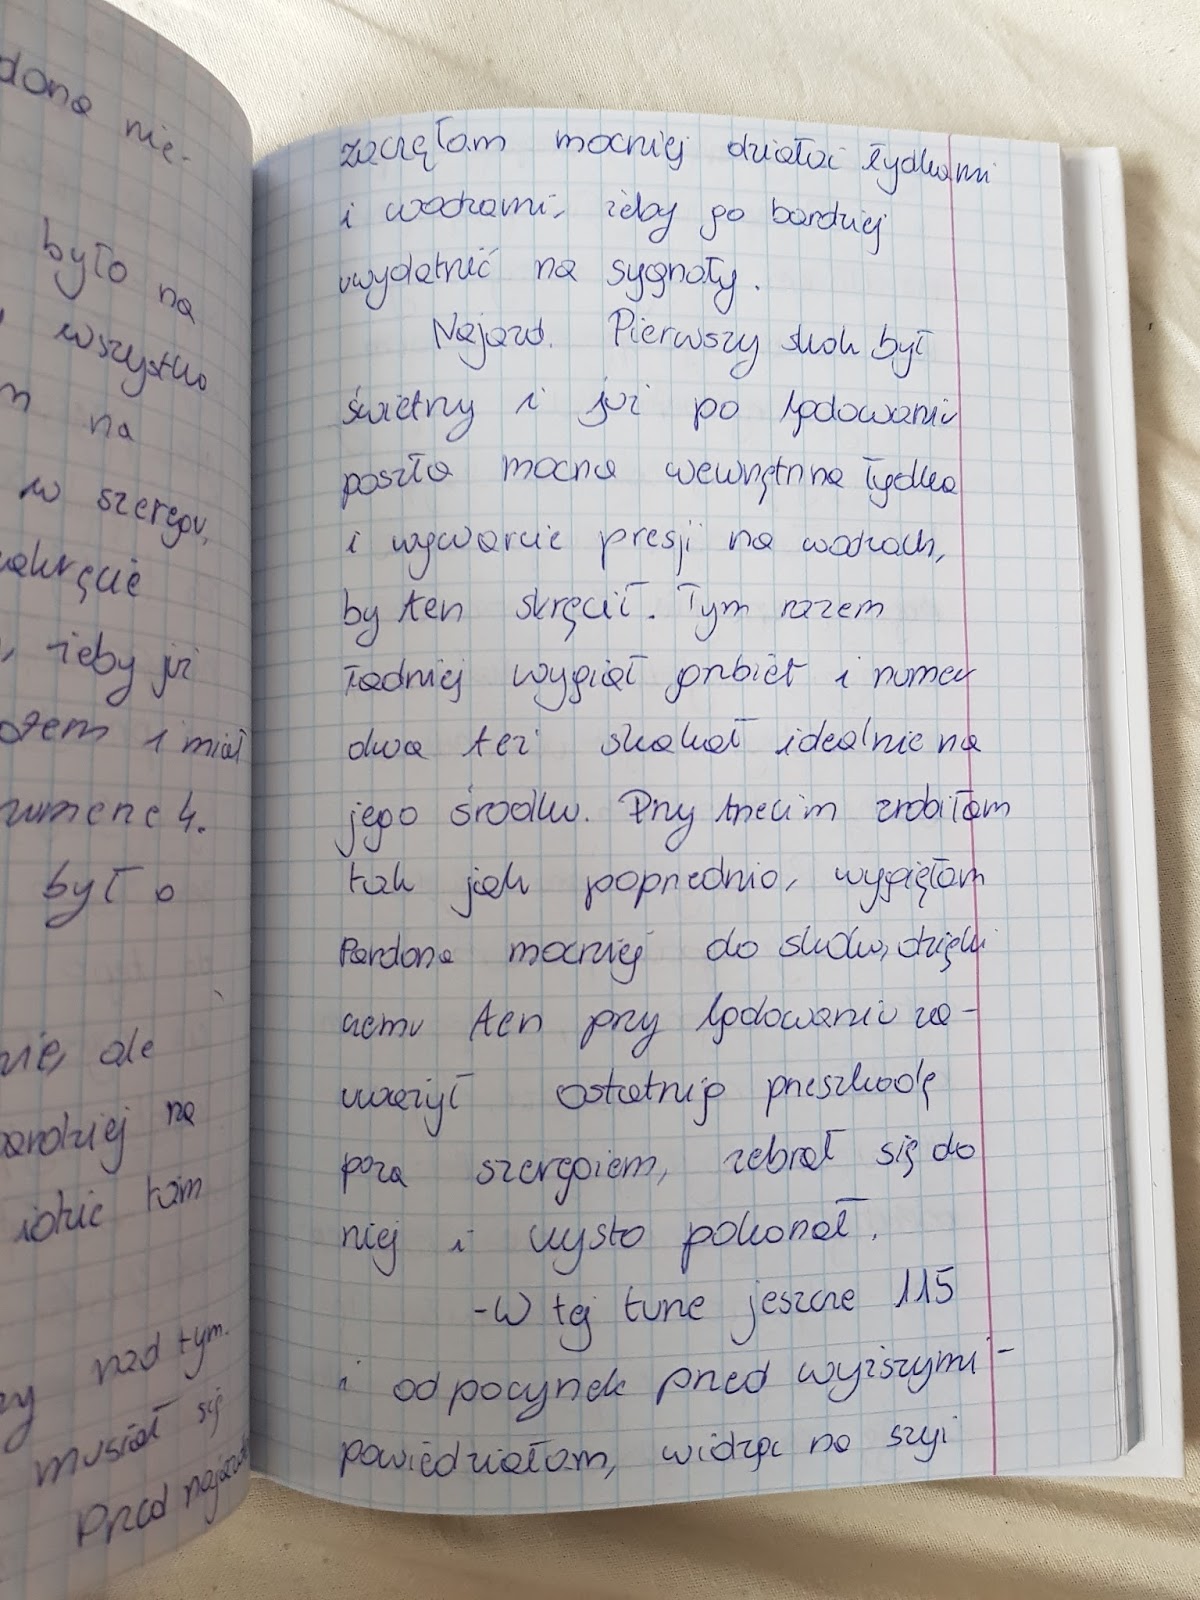 dona nie-
było na
wszystko
m na
w szeregu,
zakręcie
, żeby już
potem i miał
numerze 4.
było
nie, ale
bardziej na
idzie tam
nad tym.
musiał się
Przed najazdem
zaczęłam mocniej działać łydkami
i wodzami, żeby go bardziej
uwydatnić na sygnały.
Najazd. Pierwszy skok był
świetny i już po lądowaniu
poszła mocna wewnętrzna łydka
i wywarcie presji na wodzach,
by ten skręcił. Tym razem
ładniej wygiął grzbiet i numer
dwa też skakał idealnie na
jego środku. Przy trzecim zrobiłam
tak jak poprzednio, wygięłam
Pardona mocniej do skoku, dzięki
czemu ten przy lądowaniu za-
uważył ostatnią przeszkodę
poza szeregiem, zebrał się do
niej i czysto pokonał.
-W tej turze jeszcze 115
i odpoczynek przed wyższymi -
powiedziałam, widząc na szyi